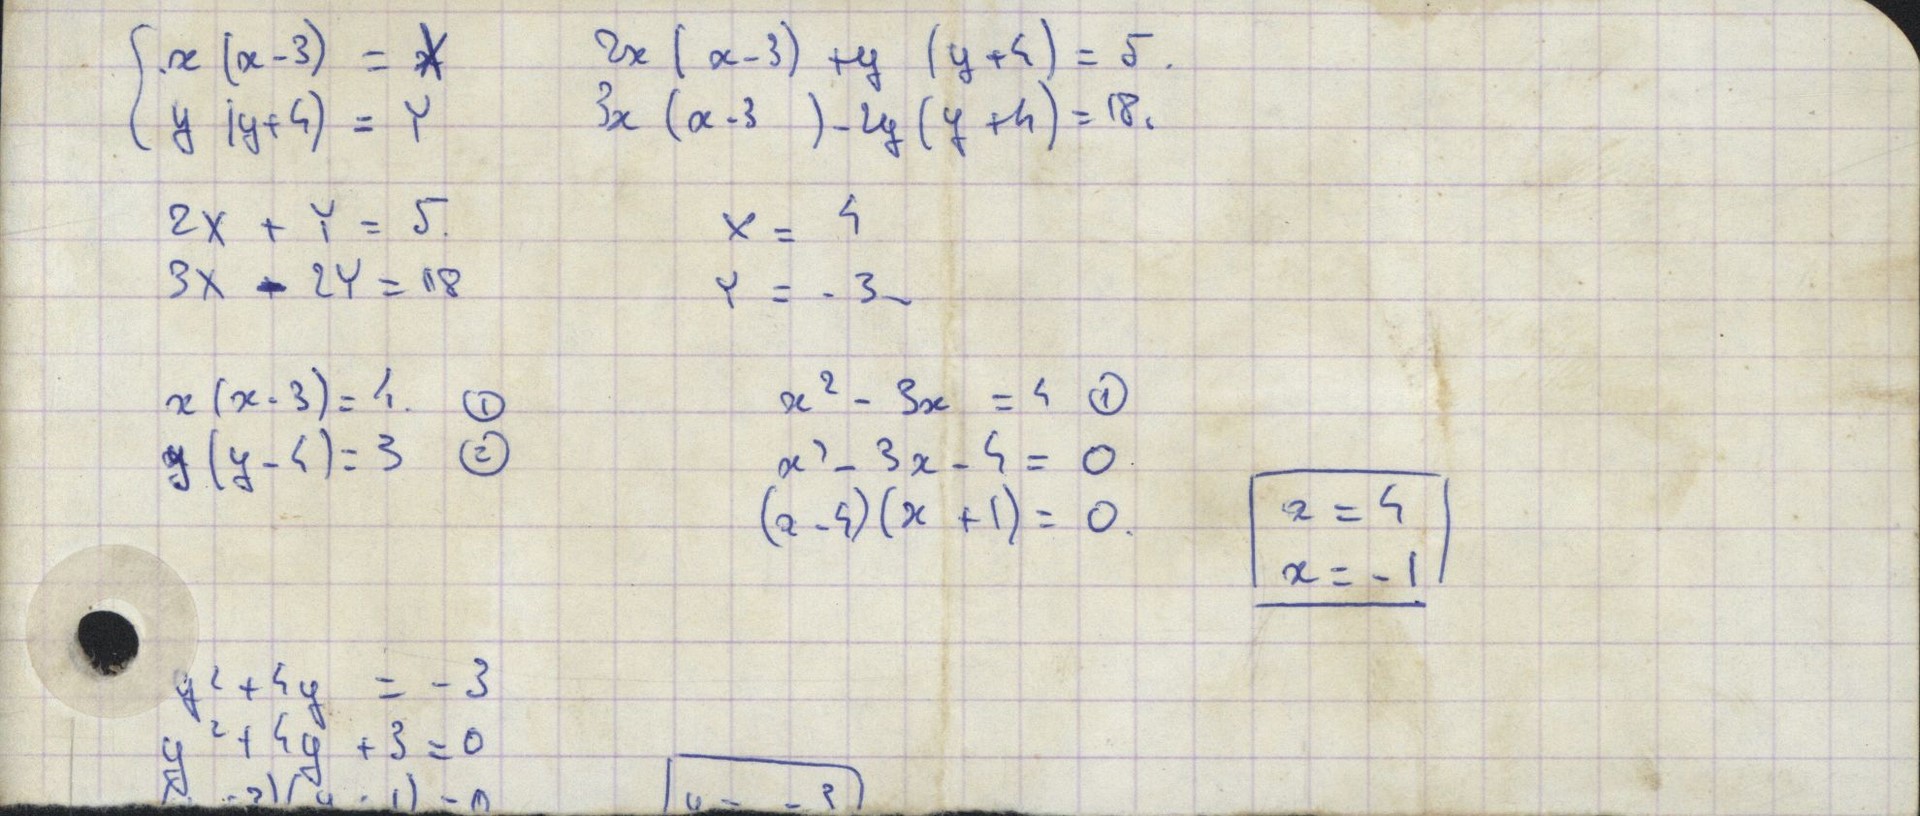 x (x-3) = X
y (y+4) = Y
2x ( x-3) + y (y+4) = 5.
3x (x-3 ) - 2y (y+4) = 18.
2X + Y = 5.
3X - 2Y = 18
X = 4
Y = -3
x (x-3) = 4. ①
y (y-4) = 3 ②
x² - 3x = 4 ①
x² - 3x - 4 = 0
(x-4)(x+1) = 0.
x = 4
x = -1
y² + 4y = -3
y² + 4y + 3 = 0